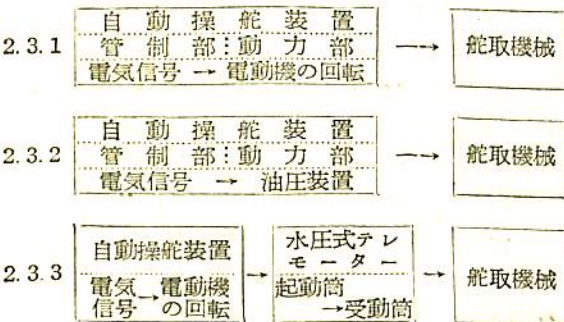 2.3.1
自動操舵装置
管制部⋮動力部
電気信号 → 電動機の回転
→
舵取機械
2.3.2
自動操舵装置
管制部⋮動力部
電気信号 → 油圧装置
→
舵取機械
2.3.3
自動操舵装置
電気信号→電動機の回転
→
水圧式テレモーター
起動筒
→受動筒
→
舵取機械